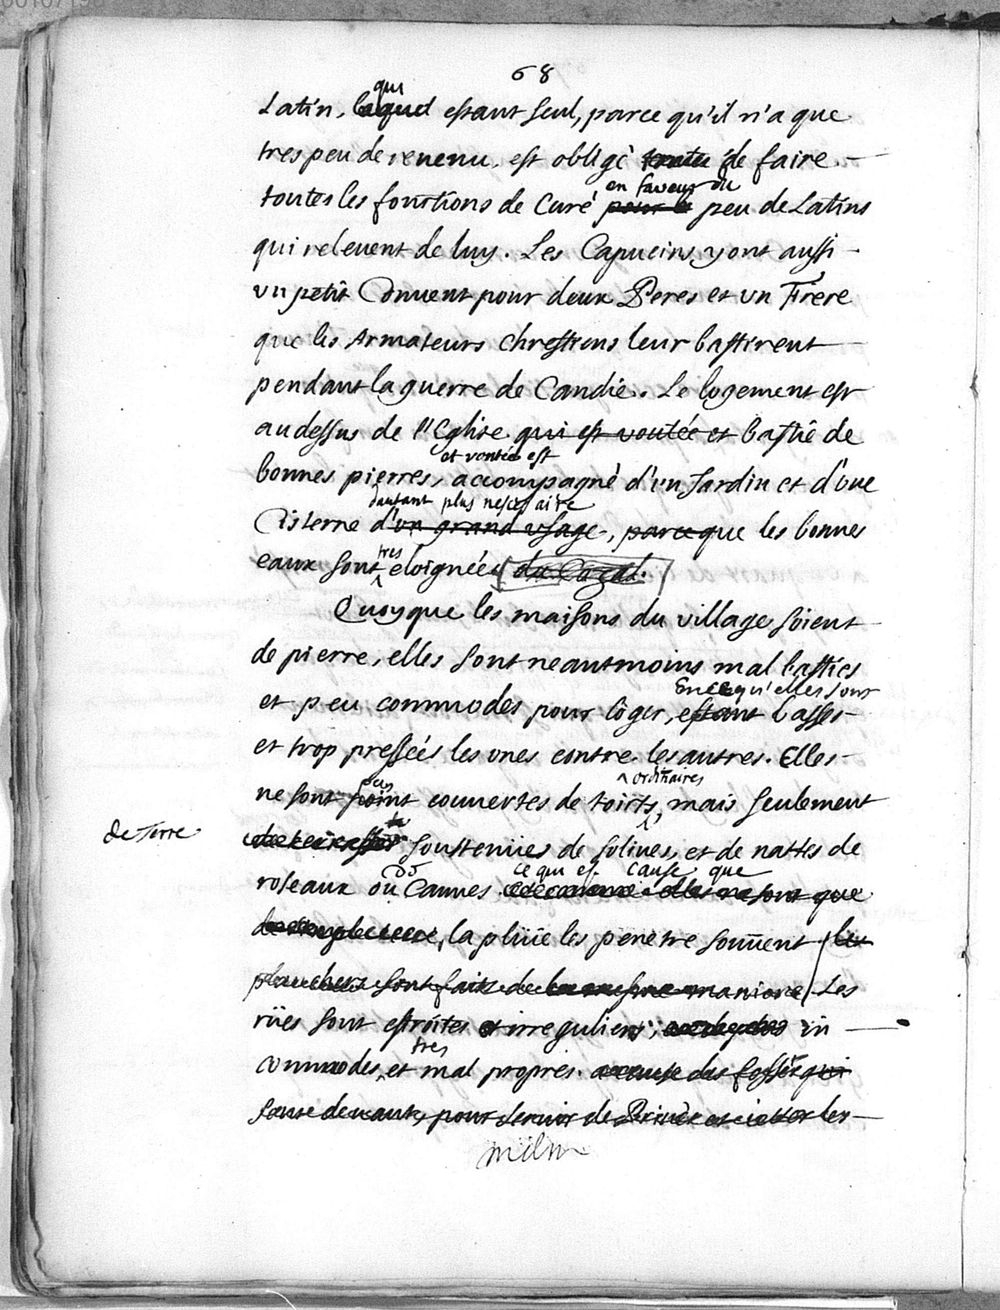 68
qui
Latin, lequel estant seul, parce qu'il n'a que
tres peu de revenu, est obligé de faire
en faveur du
toutes les fonctions de Curé pour le peu de Latins
qui relevent de luy. Les Capucins y ont aussi
vn petit Convent pour deux Peres et vn Frere
que les Armateurs chrestiens leur bastirent
pendant la guerre de Candie. Le logement est
au dessus de l'Eglise qui est voutée et bastie de
et voutée est
bonnes pierres, accompagné d'vn Jardin et d'vne
dautant plus necessaire
Cisterne d'vn grand vsage, parce que les bonnes
tres
eaux sont eloignées du Cazal.
Quoyque les maisons du village soient
de pierre, elles sont neantmoins mal basties
En ce qu'elles sont
et peu commodes pour loger, estant basses
et trop pressées les vnes contre les autres. Elles
pas ordinaires
ne sont point couvertes de toicts, mais seulement
de terre
soustenües de solives, et de nattes de
ce qui est cause que
roseaux ou Cannes ne sont que
la plüie les penetre souvent les
planchers sont faits de la mesme maniere Les
rües sont estroites et irregulieres, in
tres
commodes, et mal propres. a cause des fossés qui
sont devant, pour servir de Privés et ietter les